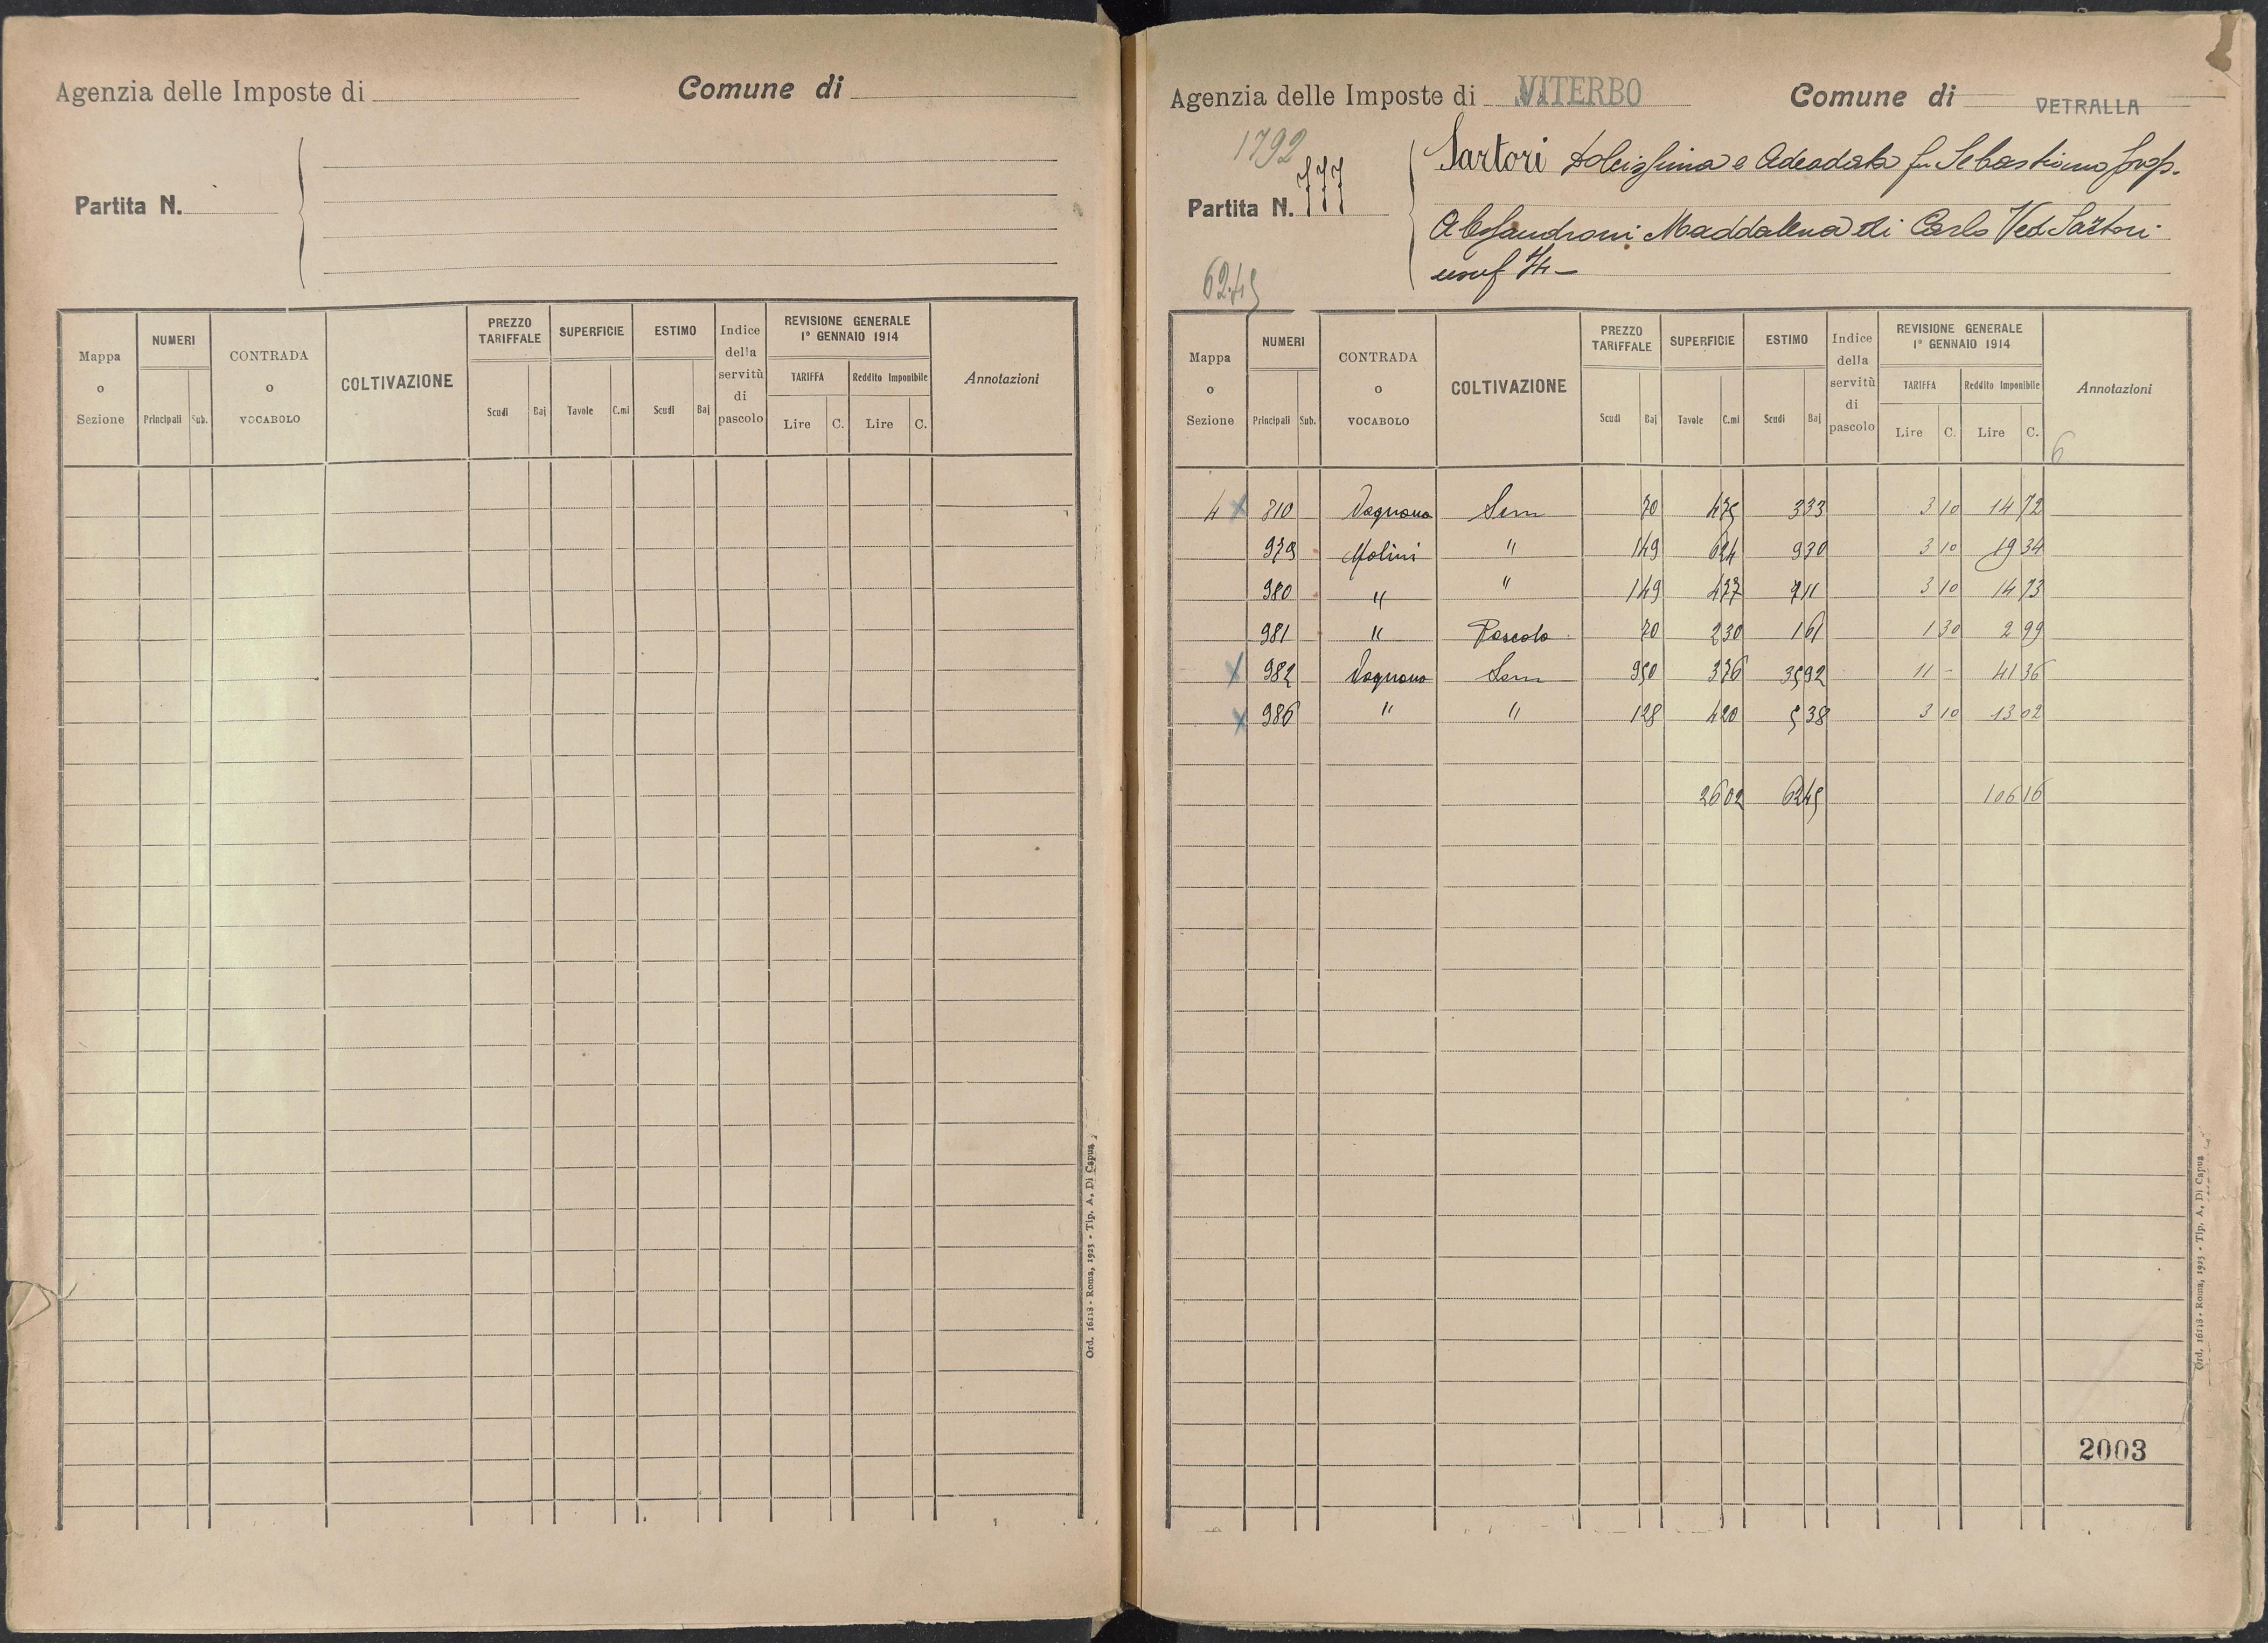 Agenzia delle Imposte di Comune di
Partita N.
Mappa o Sezione NUMERI Principali Sub. CONTRADA o VOCABOLO COLTIVAZIONE PREZZO TARIFFALE Scudi Baj SUPERFICIE Tavole C.mi ESTIMO Scudi Baj Indice della servitù di pascolo REVISIONE GENERALE 1° GENNAIO 1914 TARIFFA Lire C. Reddito Imponibile Lire C. Annotazioni
Ord. 16118 - Roma, 1923 - Tip. A. Di Capua
Agenzia delle Imposte di VITERBO Comune di VETRALLA
1792
Partita N. 777
Sartori Dolcissima e Adeodata fu Sebastiano prop.
Alessandroni Maddalena di Carlo Ved Sartori
usuf
6245
Mappa o Sezione NUMERI Principali Sub. CONTRADA o VOCABOLO COLTIVAZIONE PREZZO TARIFFALE Scudi Baj SUPERFICIE Tavole C.mi ESTIMO Scudi Baj Indice della servitù di pascolo REVISIONE GENERALE 1° GENNAIO 1914 TARIFFA Lire C. Reddito Imponibile Lire C. Annotazioni
6
4 x 810 Vagnano Sem 70 475 333 3 10 14 72
979 Molini " 149 624 930 3 10 19 34
980 " " 149 477 711 3 10 14 73
981 " Pascolo 70 230 161 1 30 2 99
x 982 Vagnano Sem 950 376 3592 11 - 41 36
x 986 " " 128 420 538 3 10 13 02
2602 6245 106 16
2003
Ord. 16118 - Roma, 1923 - Tip. A. Di Capua